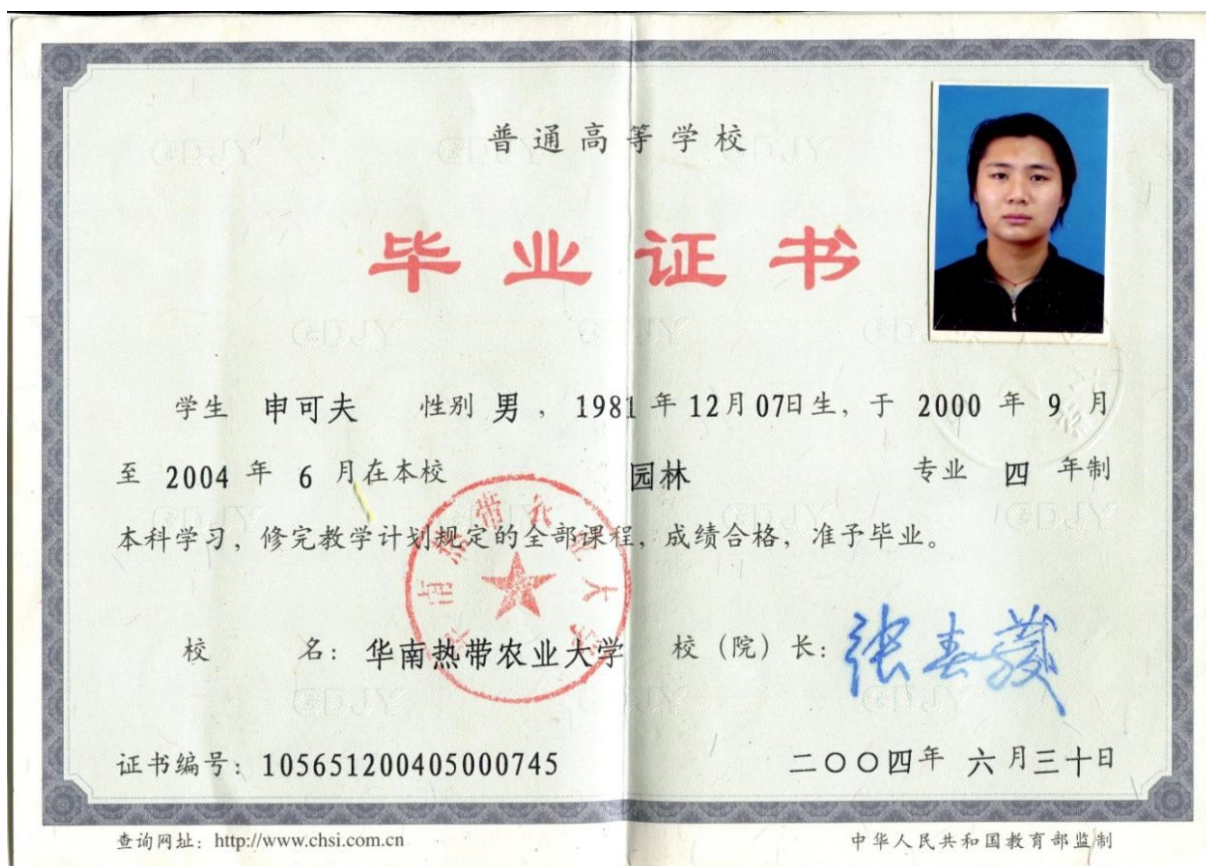 普通高等学校
毕业证书
学生 申可夫 性别 男，1981 年 12月 07日生，于 2000 年 9 月
至 2004 年 6 月在本校 园林 专业 四 年制
本科学习，修完教学计划规定的全部课程，成绩合格，准予毕业。
华南热带农业大学
校 名：华南热带农业大学 校（院）长：张春发
证书编号：105651200405000745 二〇〇四年 六月三十日
查询网址：http://www.chsi.com.cn 中华人民共和国教育部监制
GDJY